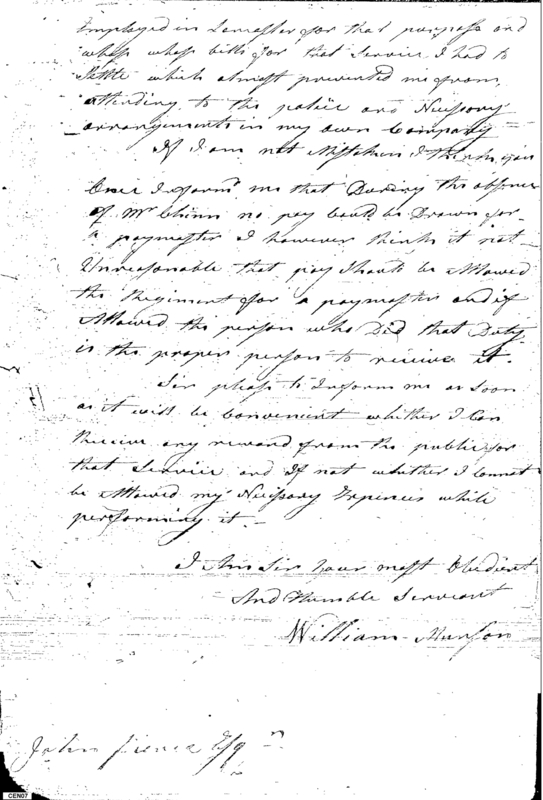 Employed in Lancaster for that purpose and
whose whose bills for that Service I had to
Settle which almost prevented me from
attending to the police and Necessary
arrangements in my own Company
If I am not Mistaken I think you
Once Inform'd me that During the absence
of Mr Chinn no pay Could be Drawn for
a paymaster I however think it not
Unreasonable that pay Should be Allowed
the Regiment for a paymaster and if
Allowed the person who Did that Duty
is the proper person to receive it.
Sir please to Inform me as Soon
as it will be Convenient whether I Can
Receive any reward from the public for
that Service and If not whether I Cannot
be Allowed my Necessary Expences while
performing it.
I Am Sir your most Obedient
And Humble Servant
William Munson
John Pierce Esqr
CEN07